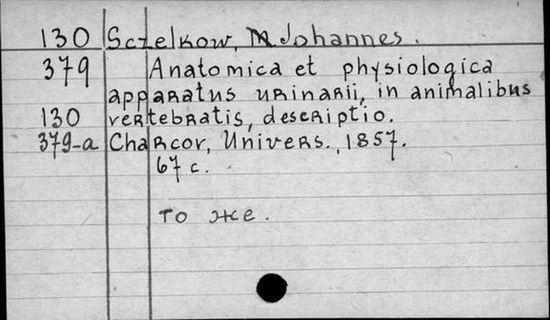 130 Sczelkow, M Johannes.
379 Anatomica et physiologica
apparatus urinarii, in animalibus
130 vertebratis, descriptio.
379-a Charcor, Univers., 1857.
67 c.
то же.